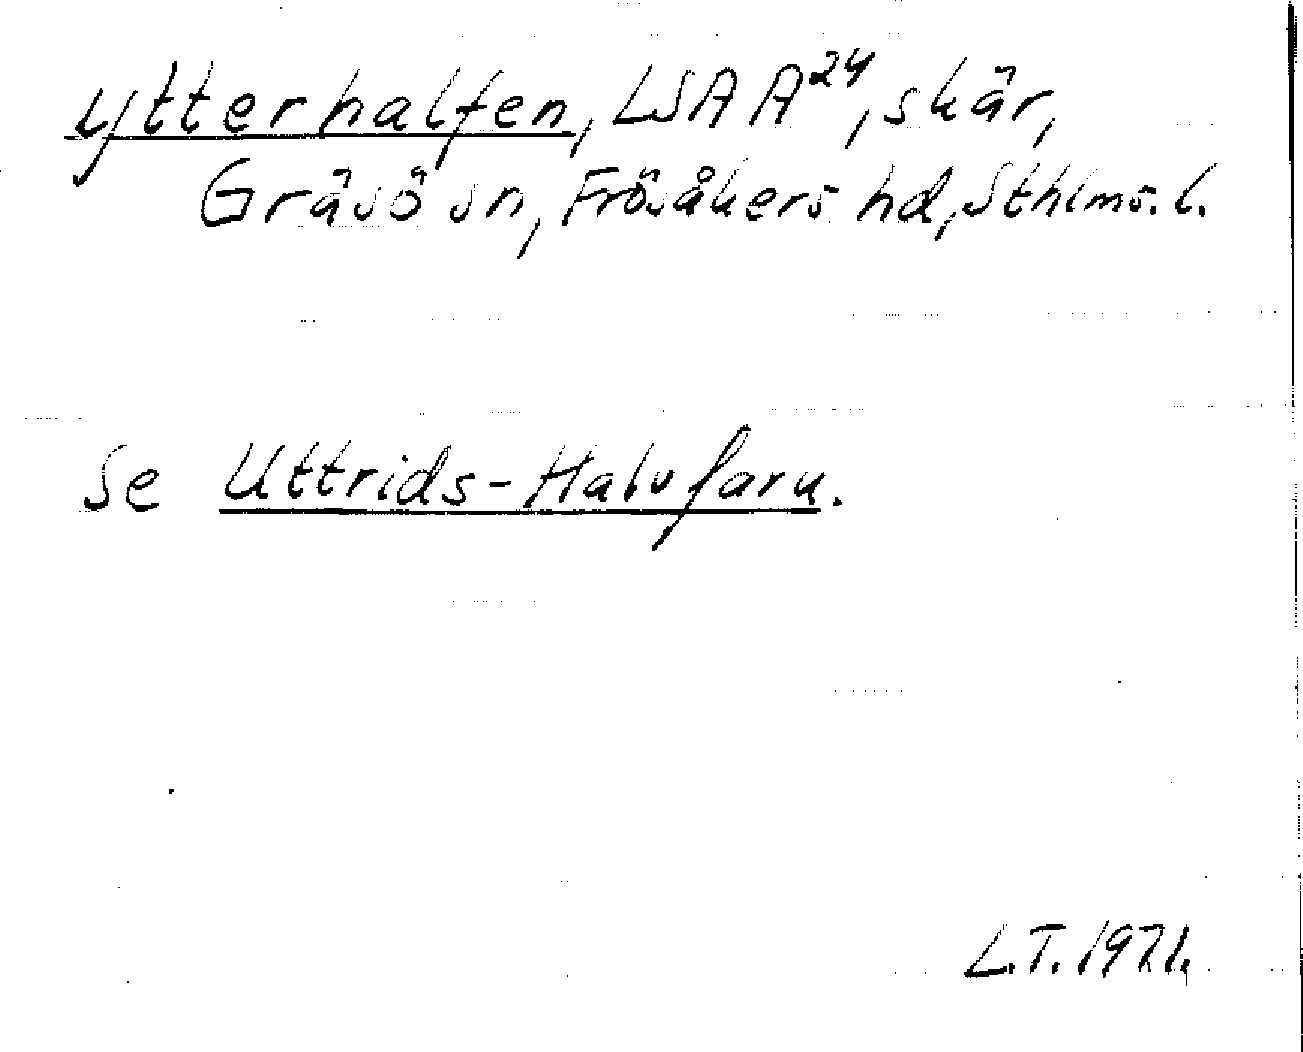 Ytterhalfen, LSA A²⁴, skär,
Gräsö sn, Frösåkers hd, Sthlms. l.
Se Uttrids-Halvfaru.
L.T. 1971.